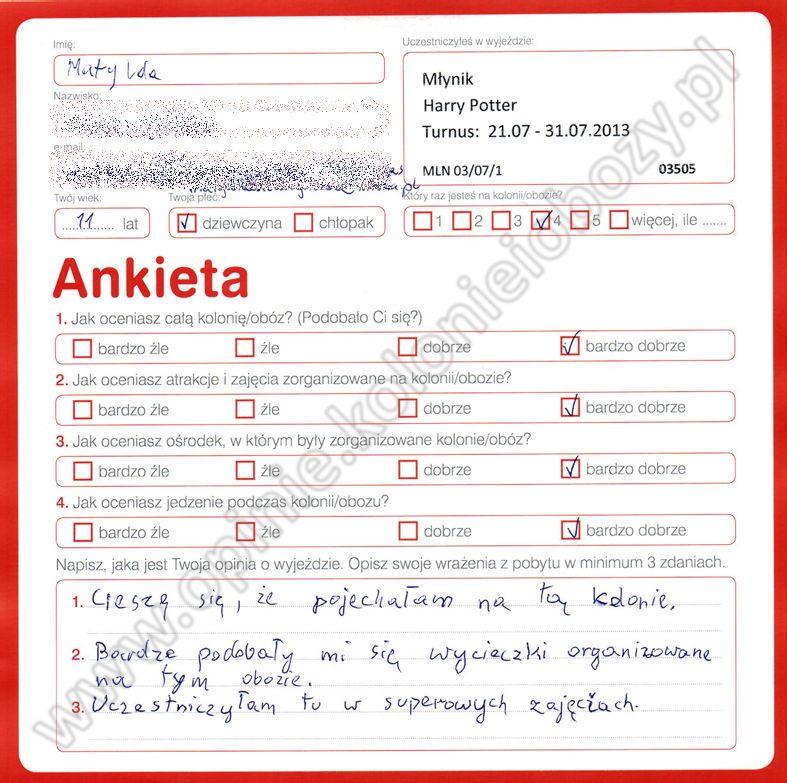 Imię:
Uczestniczyłeś w wyjeździe:
Matylda
Młynik
Harry Potter
Turnus: 21.07 - 31.07.2013
MLN 03/07/1 03505
Nazwisko:
e-mail:
Twój wiek:
Twoja płeć:
Który raz jesteś na kolonii/obozie?
11 lat
dziewczyna chłopak
1 2 3 4 5 więcej, ile .......
Ankieta
1. Jak oceniasz całą kolonię/obóz? (Podobało Ci się?)
bardzo źle źle dobrze bardzo dobrze
2. Jak oceniasz atrakcje i zajęcia zorganizowane na kolonii/obozie?
bardzo źle źle dobrze bardzo dobrze
3. Jak oceniasz ośrodek, w którym były zorganizowane kolonie/obóz?
bardzo źle źle dobrze bardzo dobrze
4. Jak oceniasz jedzenie podczas kolonii/obozu?
bardzo źle źle dobrze bardzo dobrze
Napisz, jaka jest Twoja opinia o wyjeździe. Opisz swoje wrażenia z pobytu w minimum 3 zdaniach.
1. Cieszę się, że pojechałam na tą kolonie.
2. Bardzo podobały mi się wycieczki organizowane
na tym obozie.
3. Uczestniczyłam tu w superowych zajęciach.
www.opinie.kolonieiobozy.pl